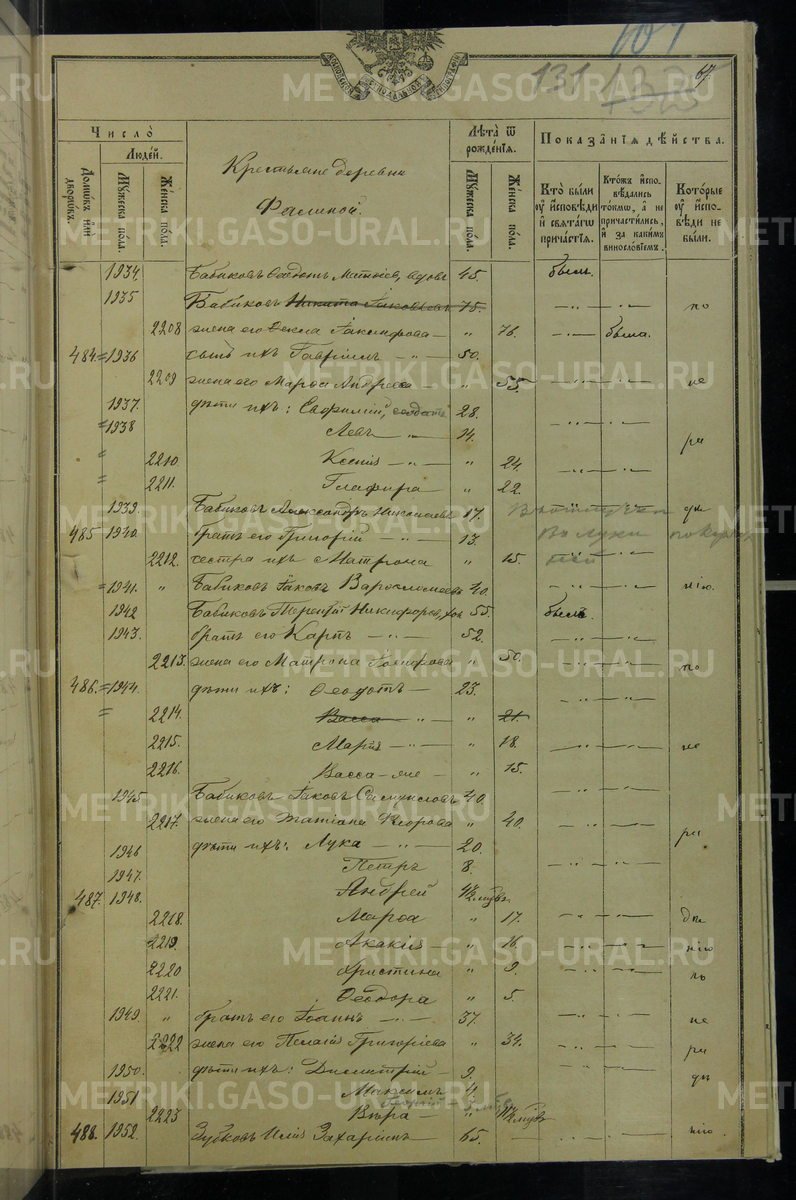 107
131 133 67.
Число̀
Людей.
Домѡвъ или дворѡвъ.
Мꙋжеска пола.
Женска пола.
Крестьяне деревни
Фалиной.
Лѣта ѿ рожденїѧ.
Мꙋжеска пола.
Женска пола.
Показанїѧ дѣйства.
Кто были ᲂу исповѣди и свѧтагѡ причастїѧ.
Ктожъ исповѣдались токмѡ, а не причастились, и за какимъ винословїемъ.
Которые ᲂу исповѣди не были.
1934 Бабиковъ Ѳедотъ Матѳіевъ, вдовъ 45. былъ.
1935 Бабиковъ Никита Іаковлевъ 75. — по
2208 жена его Ѳекла — „ 76. была.
484. 1936 сынъ ихъ Гавріилъ — 50.
2209 жена его Марѳа Андреева — „ 55. не
1937. дѣти ихъ: Евфимій, 28.
1938 Левъ „ 24. ра
2210. Ксенія — „ 24
2211. Глафира — „ 22.
1939. Бабиковъ Александръ Николаевъ 17. ди
485 1940. братъ его Григорій — 13.
2212. сестра ихъ Матрона „ 15.
1941. „ Бабиковъ Іаковъ Варѳоломеевъ 40. нію.
1942 Бабиковъ Терентій Никифоровъ, хол 55. былъ.
1943. братъ его Карпъ — 52.
2213. жена его Матрона „ 50. по
486. 1944. дѣти ихъ: Ѳеодотъ — 23.
2214. Васса — „ 21.
2215. Марія — „ 18. не
2216. Васса — „ 15.
1945. Бабиковъ Іаковъ Самуиловъ 40.
2217. жена его Татіана Егорова „ 40. ра
1946 дѣти ихъ: Лука — 20.
1947. Петръ 8.
487. 1948. Андрей
2218. Марѳа „ 17.
2219. Акакія — „ 16. нію
2220 Христина „ 9.
2221. Ѳеодора „ 5.
1949. „ братъ его Іоаннъ — 37. не
2222 жена его Пелагія Григоріева „ 34. ра
1950. дѣти ихъ: Димитрій — 9. ди
1951 Максимъ 4.
2223 Вѣра — „
488. 1952. Зубковъ Илія Захаріинъ — 65. нію.
METRIKI.GASO-URAL.RU